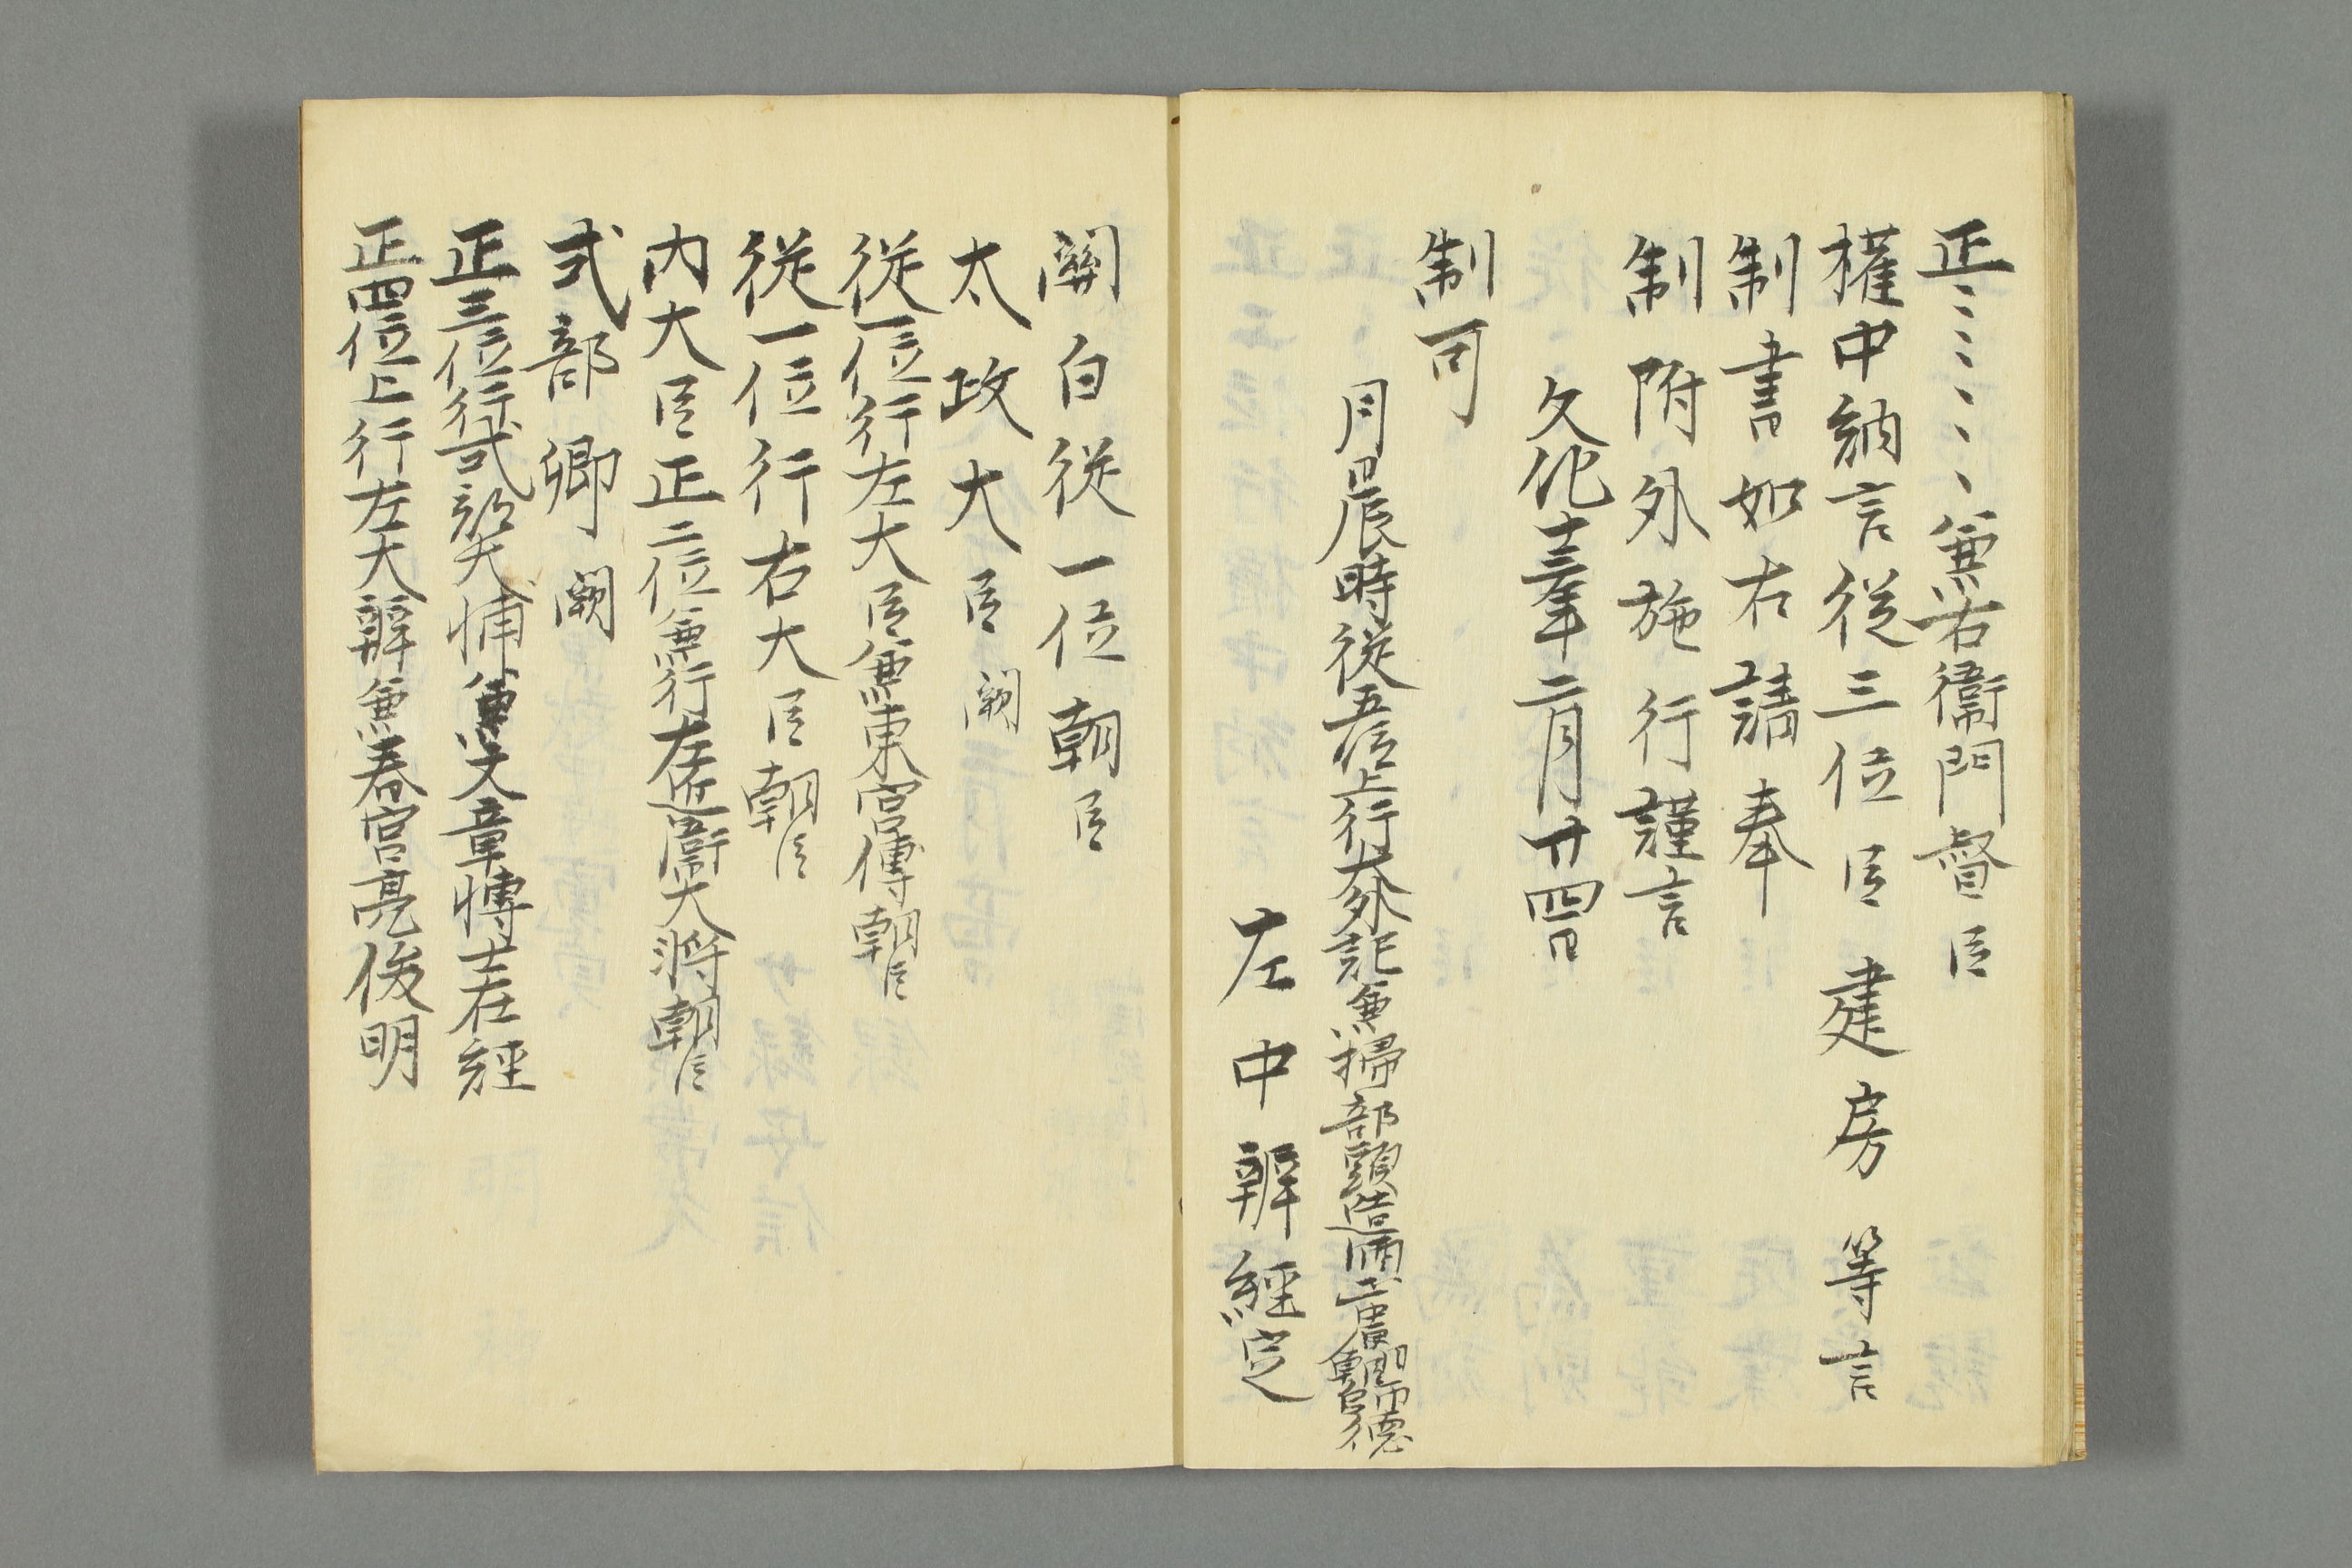 正、、、、、、兼右衛門督臣
權中納言從三位臣建房等言
制書如右請奉
制附外施行謹言
文化十三年二月廿四日
制可
月日辰時從五位上行大外記兼掃部頭造酒正中原朝臣師德
左中辨經定
關白從一位朝臣
太政大臣闕
從一位行左大臣兼東宮傅朝臣
從一位行右大臣朝臣
內大臣正二位兼行左近衛大将朝臣
式部卿闕
正三位行式部大輔兼文章博士在經
正四位上行左大辨兼春宮亮俊明